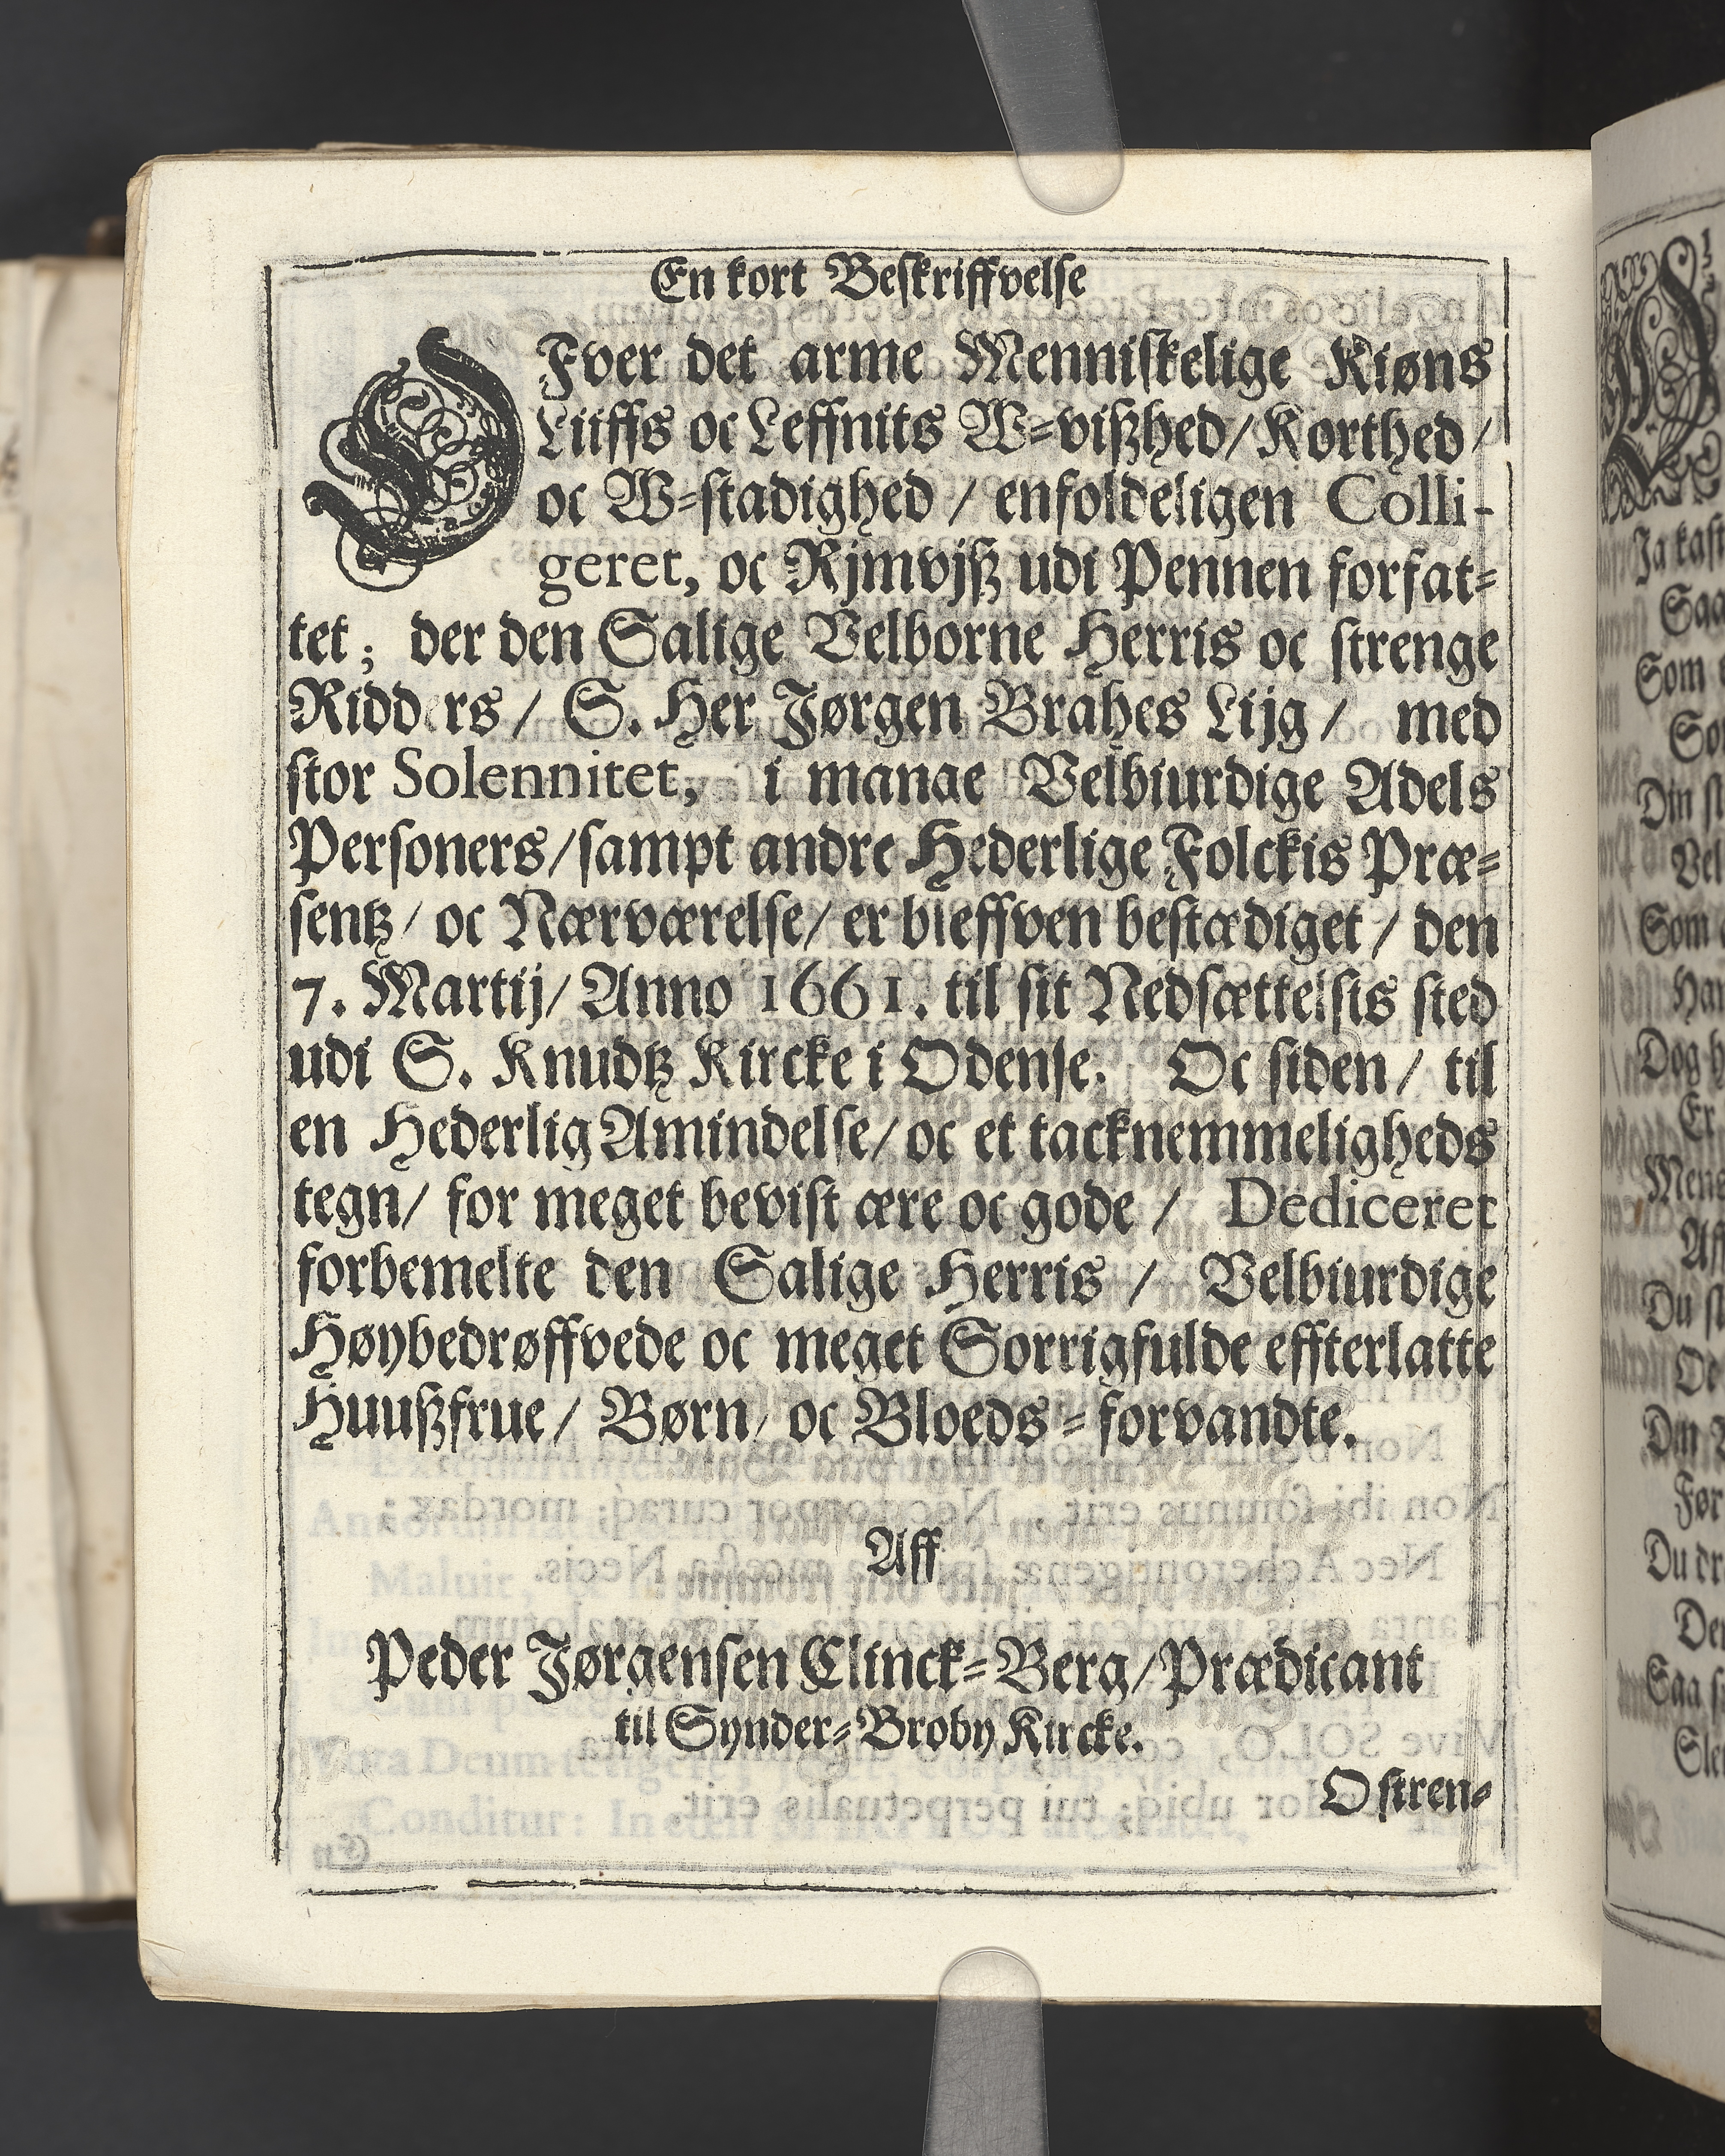 En kort Beskriffvelse
OFver det arme Menniskelige Kiøns
Liiffs oc Leffnits W-vißhed/ Korthed/
oc W-stadighed / enfoldeligen Colli-
geret, oc Rjmvjß udi Pennen forfat-
tet; der den Salige Velborne Herris oc strenge
Ridders / S. Her Jørgen Brahes Lijg / med
stor Solennitet, i mange Velbiurdige Adels
Personers/sampt andre Hederlige Folckis Præ-
sentz/ oc Nærværelse/ er bleffven bestædiget / den
7. Martij/ Anno 1661. til sit Nedsættelsis sted
udi S. Knudtz Kircke i Odense. Oc siden / til
en Hederlig Amindelse/ oc et tacknemmeligheds
tegn/ for meget bevist ære oc gode / Dediceret
forbemelte den Salige Herris / Velbiurdige
Høybedrøffvede oc meget Sorrigfulde effterlatte
Huußfrue/ Børn/ oc Bloeds-forvandte.
Aff
Peder Jørgensen Clinck-Berg/Prædicant
til Synder-Broby Kircke.
O stren-